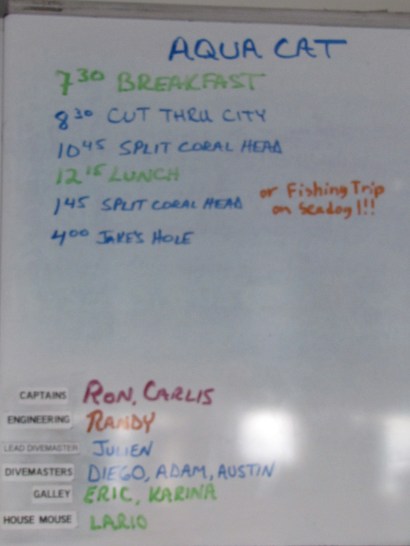 AQUA CAT
730 BREAKFAST
830 CUT THRU CITY
1045 SPLIT CORAL HEAD
1215 LUNCH
145 SPLIT CORAL HEAD or Fishing Trip
on Seadog!!!
400 JAKE'S HOLE
CAPTAINS RON, CARLIS
ENGINEERING RANDY
LEAD DIVEMASTER JULIEN
DIVEMASTERS DIEGO, ADAM, AUSTIN
GALLEY ERIC, KARINA
HOUSE MOUSE LARIO